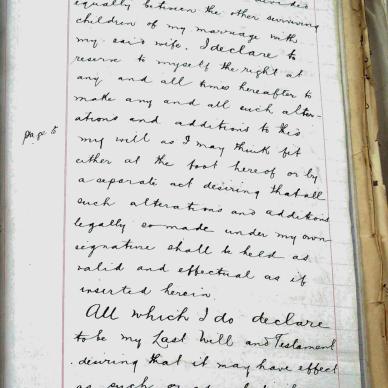 divided
equally between the other surviving
children of my marriage with
my said wife. I declare to
reserve to myself the right at
any and all times hereafter to
make any and all such alter-
ations and additions to this
page 5
my will as I may think fit
either at the foot hereof or by
a separate act desiring that all
such alterations and additions
legally so made under my own
signature shall be held as
valid and effectual as if
inserted herein.
All which I do declare
to be my Last Will and Testament
desiring that it may have effect
as such or